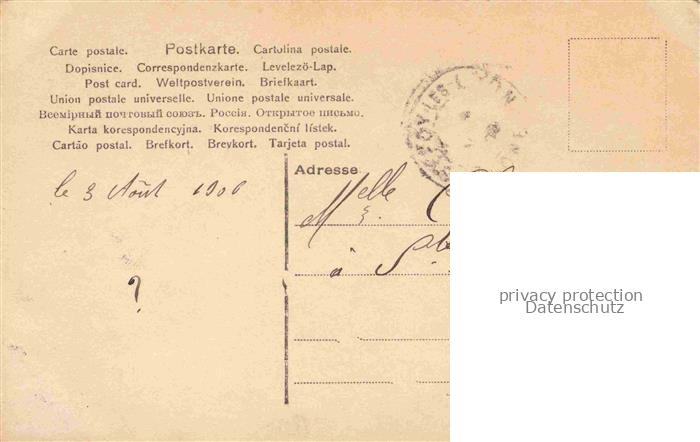 Carte postale. Postkarte. Cartolina postale.
Dopisnice. Correspondenzkarte. Levelezö-Lap.
Post card. Weltpostverein. Briefkaart.
Union postale universelle. Unione postale universale.
Всемірный почтовый союзъ. Россія. Открытое письмо.
Karta korespondencyjna. Korespondenční lístek.
Cartão postal. Brefkort. Brevkort. Tarjeta postal.
Adresse
le 3 Août 1906
Melle
à
?
privacy protection
Datenschutz